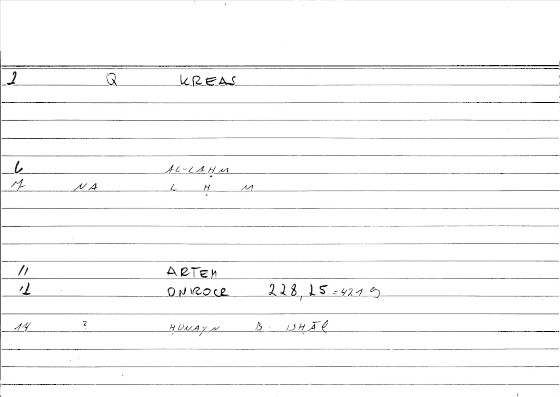 1 Q KREAS
6 AL-LAḤM
7 NA L Ḥ M
11 ARTEM
12 ONIROCR 228,15 = 421 9
14 ? ḤUNAYN B. ISḤĀQ